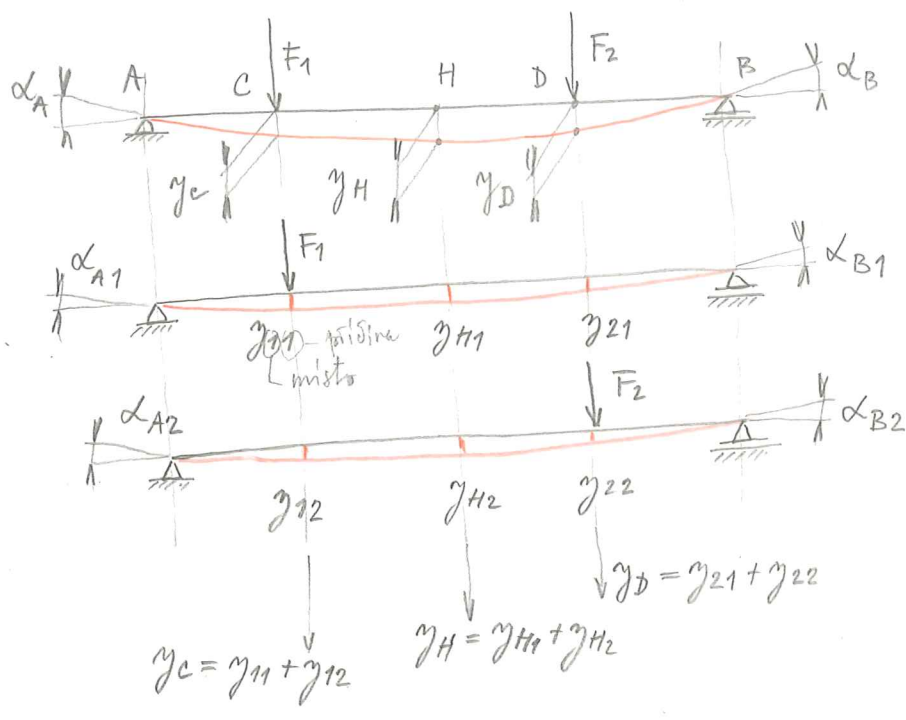 α_A A C F₁ H D F₂ B α_B
y_C y_H y_D
α_A1 F₁ α_B1
y₁₁ y_H1 y₂₁
příčina
místo
α_A2 F₂ α_B2
y₁₂ y_H2 y₂₂
y_D = y₂₁ + y₂₂
y_H = y_H1 + y_H2
y_C = y₁₁ + y₁₂